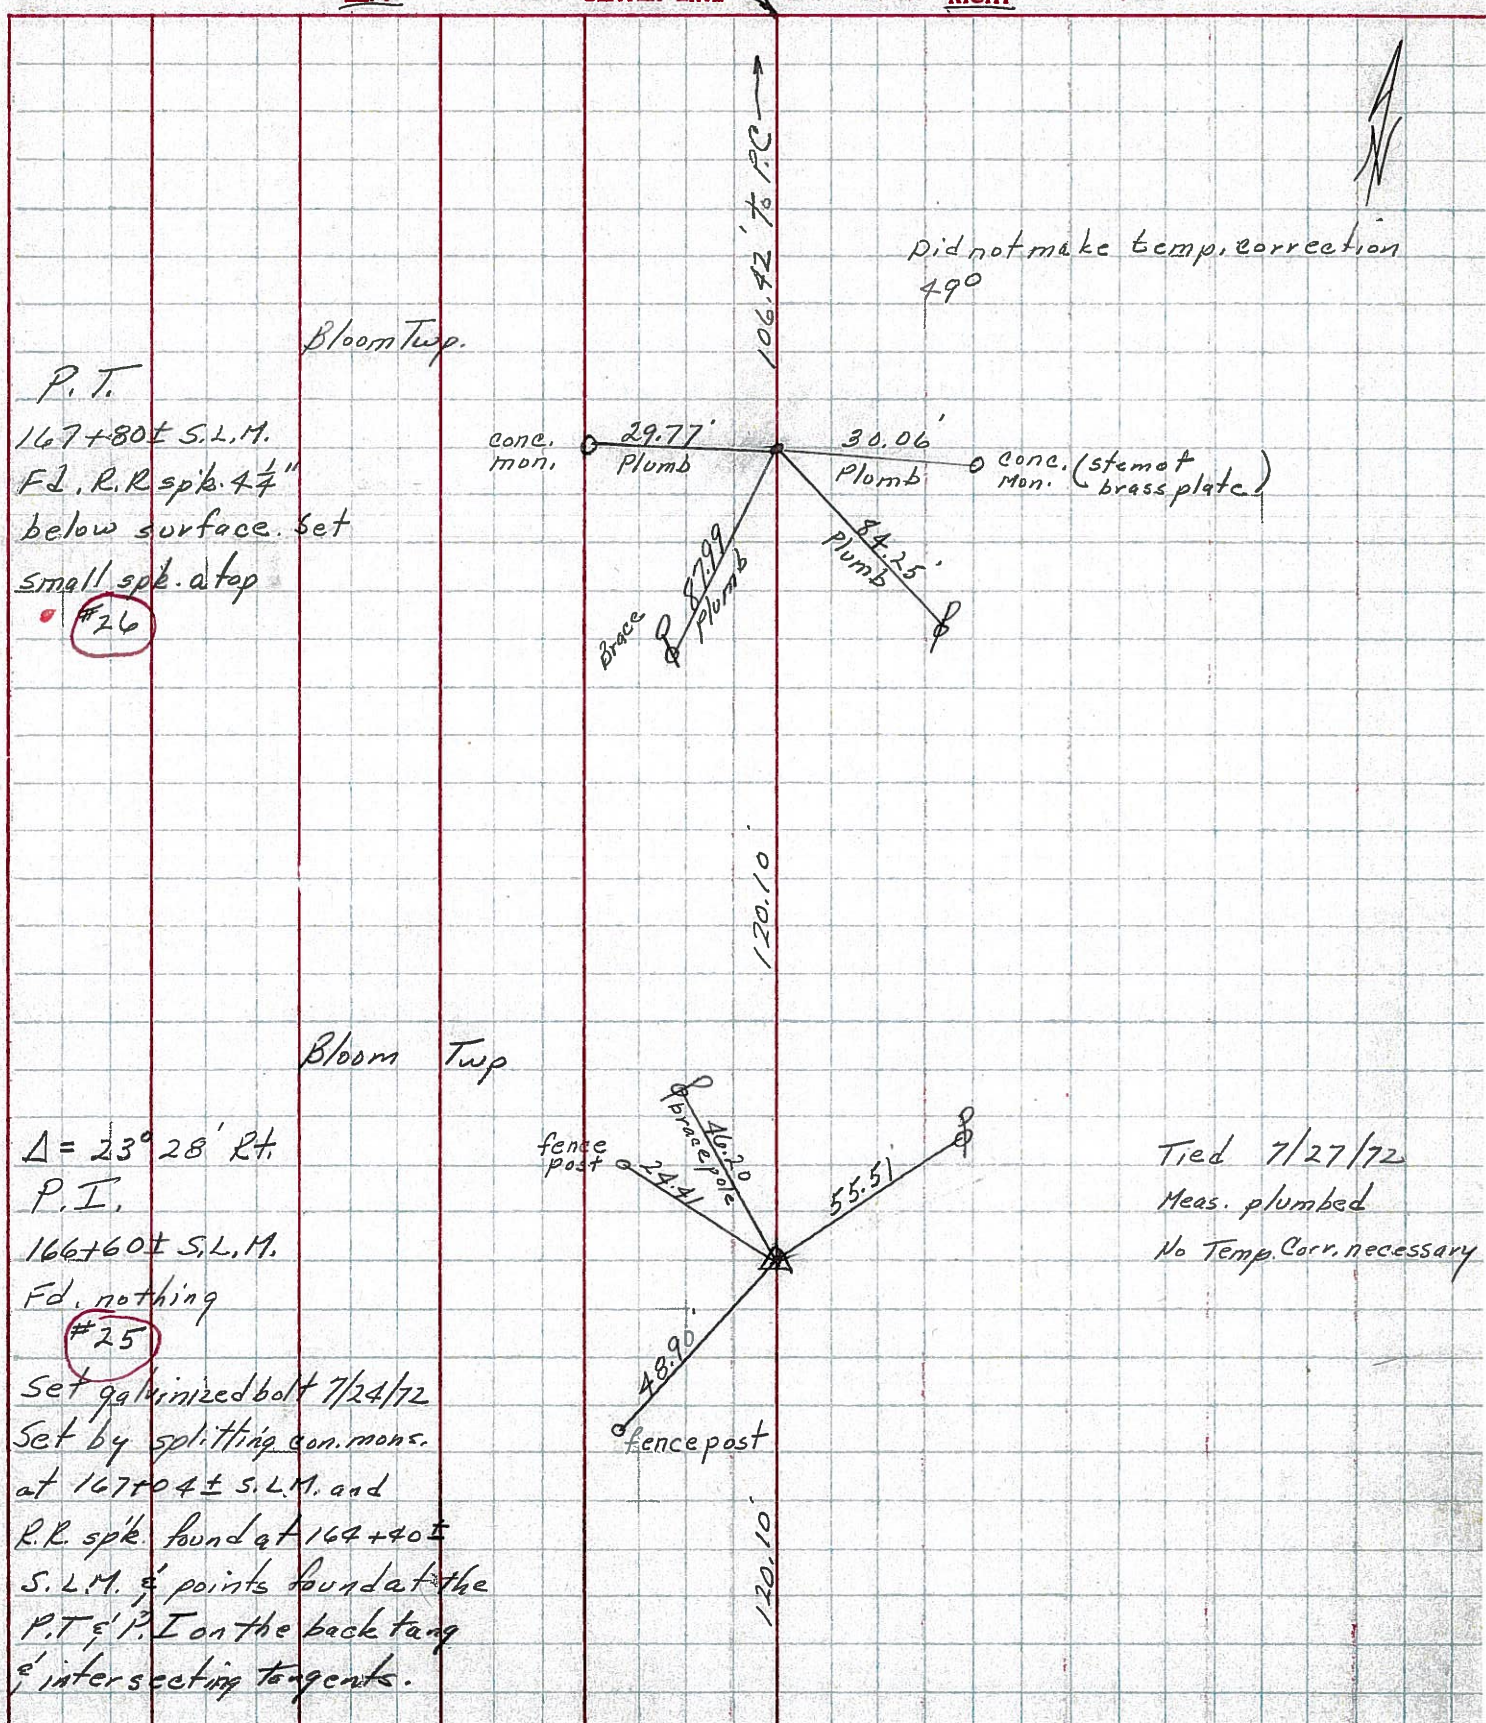 106.42' to P.C
Did not make temp. correction
49°
Bloom Twp.
P.T.
167+80± S.L.M.
Fd. R.R spk. 4¼"
below surface. Set
small spk. atop
#26
conc.
mon.
29.77'
Plumb
30.06'
Plumb
conc.
Mon.
(stem of
brass plate)
87.99
Plumb
Brace
84.25'
Plumb
120.10'
Bloom Twp
Δ = 23° 28' Rt.
P.I.
166+60± S.L.M.
Fd. nothing
#25
Set galvinized bolt 7/24/72
Set by splitting con. mons.
at 167+04± S.L.M. and
R.R. spk. found at 164+40±
S.L.M. & points found at the
P.T & P.I on the back tang
& intersecting tangents.
fence
post
24.41
46.20
brace pole
55.51'
48.90'
fence post
Tied 7/27/72
Meas. plumbed
No Temp. Corr. necessary
120.10'